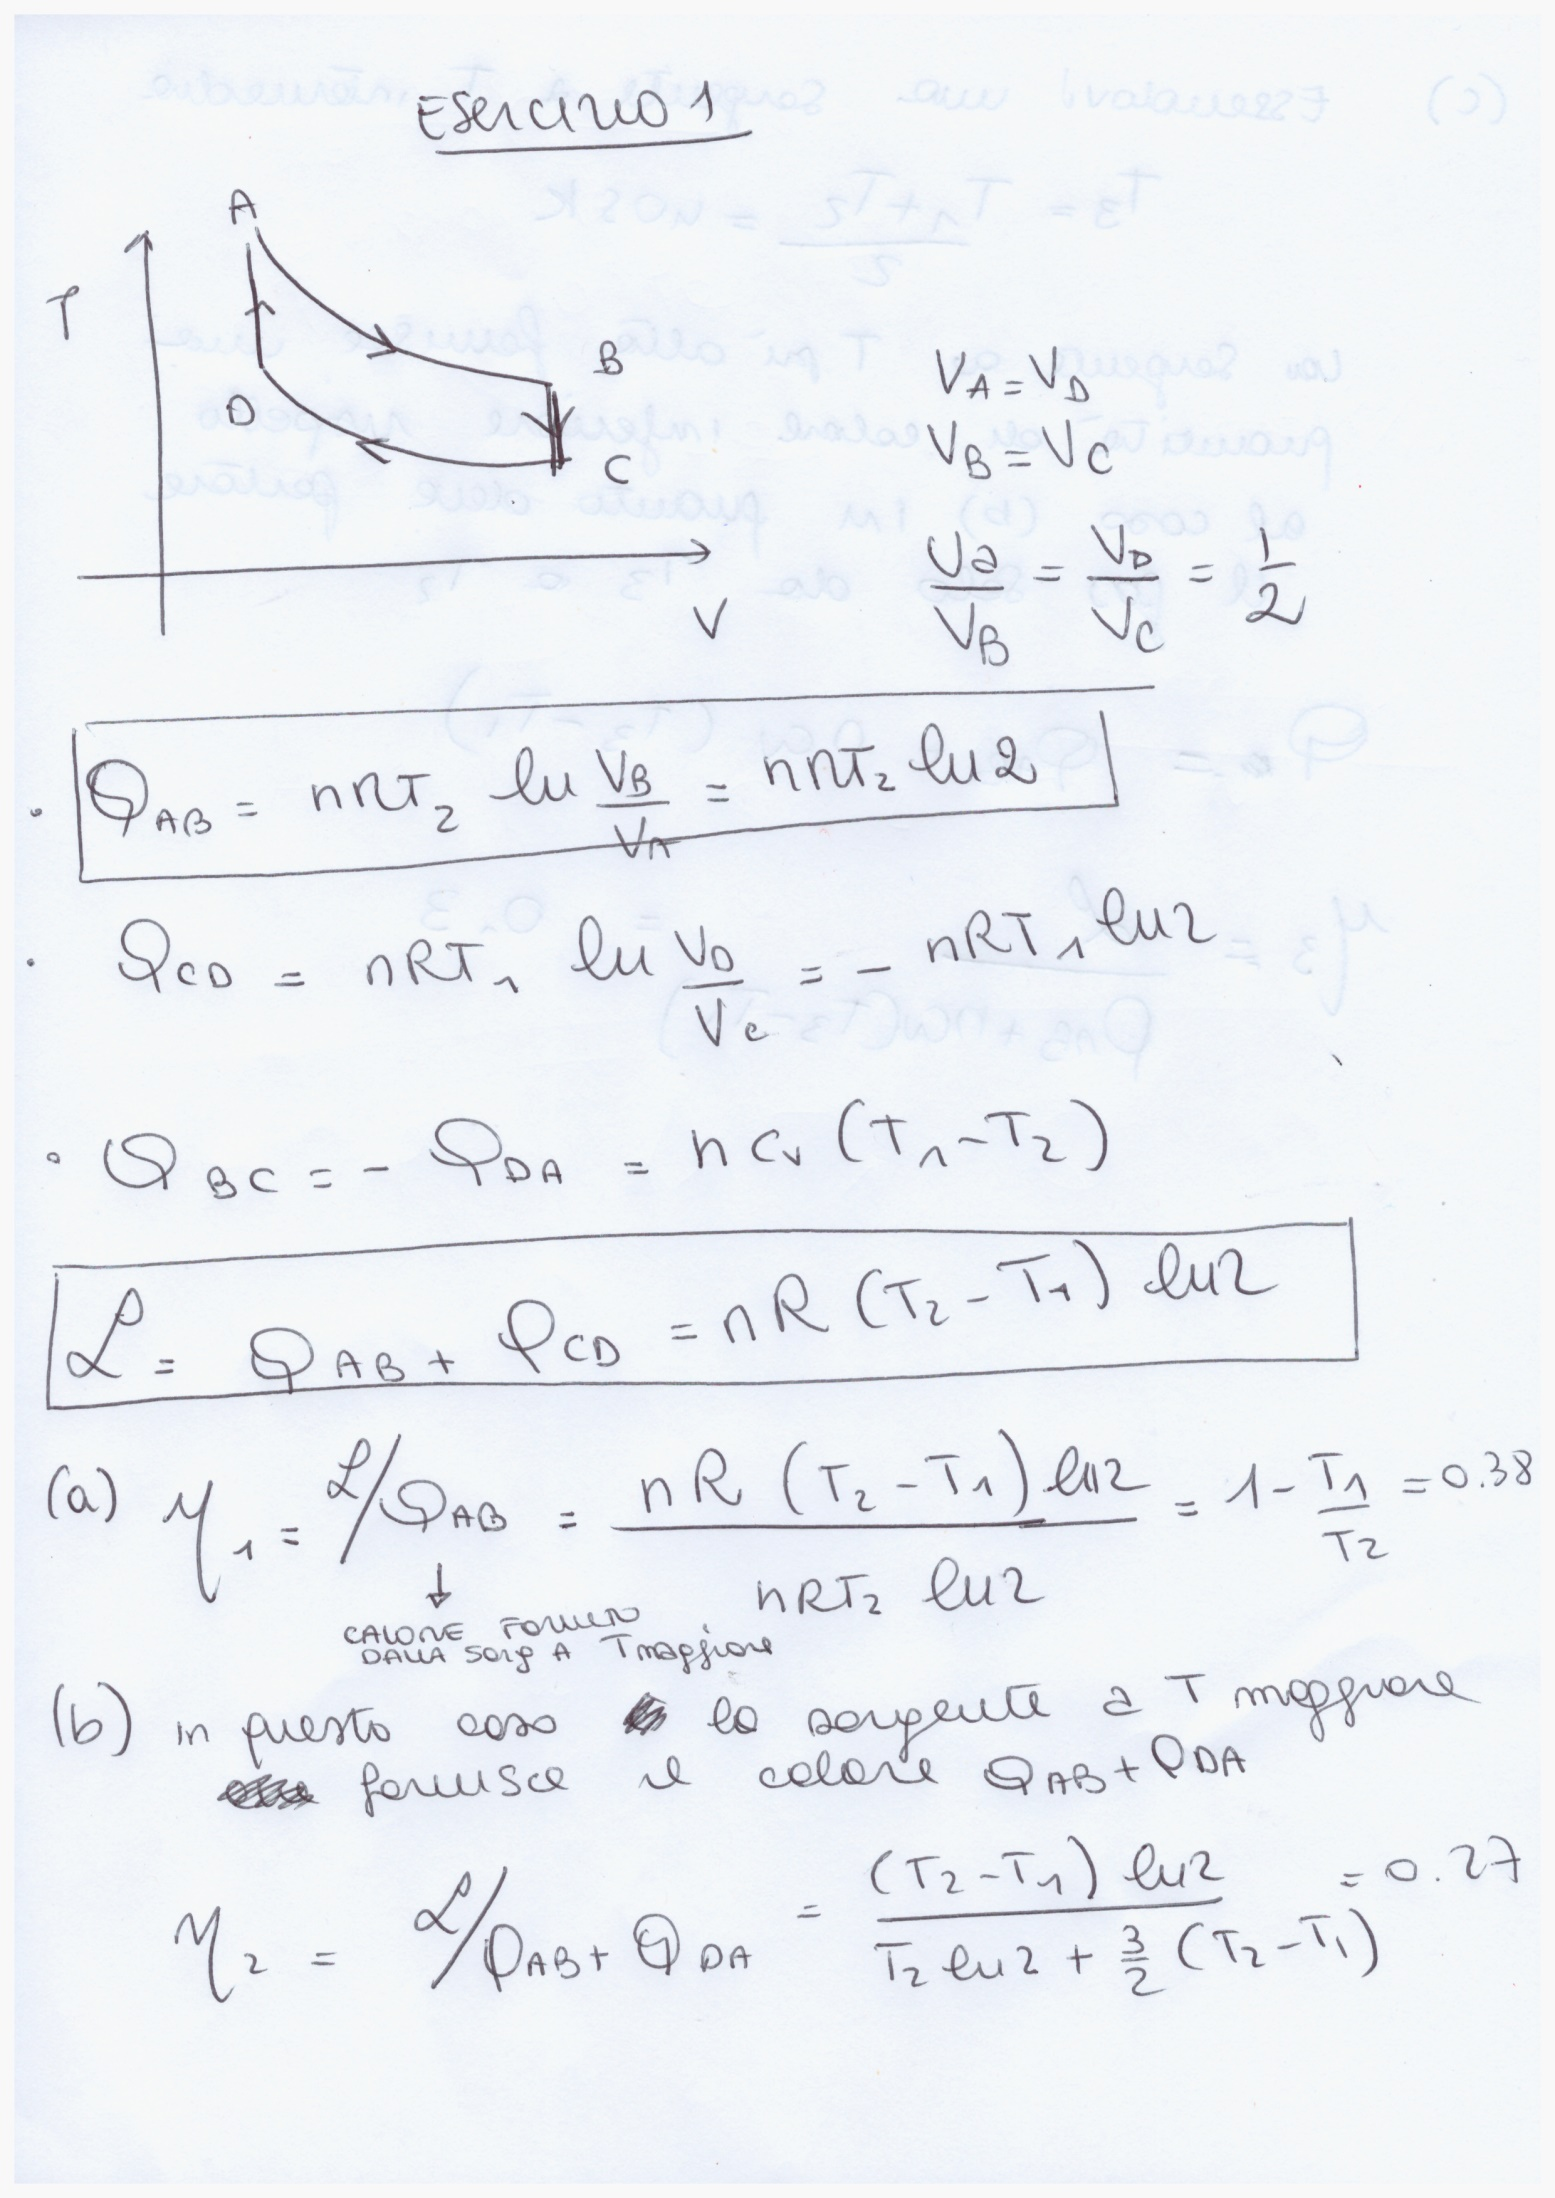 Esercizio 1
A
T
B
D
C
V
V_A = V_D
V_B = V_C
V_a/V_B = V_D/V_C = 1/2
· Q_AB = nRT_2 ln V_B/V_A = nRT_2 ln 2
· Q_CD = nRT_1 ln V_D/V_C = - nRT_1 ln 2
· Q_BC = - Q_DA = n c_v (T_1 - T_2)
L = Q_AB + Q_CD = nR (T_2 - T_1) ln 2
(a) η_1 = L/Q_AB = nR (T_2 - T_1) ln 2 / nRT_2 ln 2 = 1 - T_1/T_2 = 0.38
↓
CALORE FORNITO
DALLA Sorg A T maggiore
(b) in questo caso la sorgente a T maggiore
fornisce il calore Q_AB + Q_DA
η_2 = L/Q_AB + Q_DA = (T_2 - T_1) ln 2 / T_2 ln 2 + 3/2 (T_2 - T_1) = 0.27